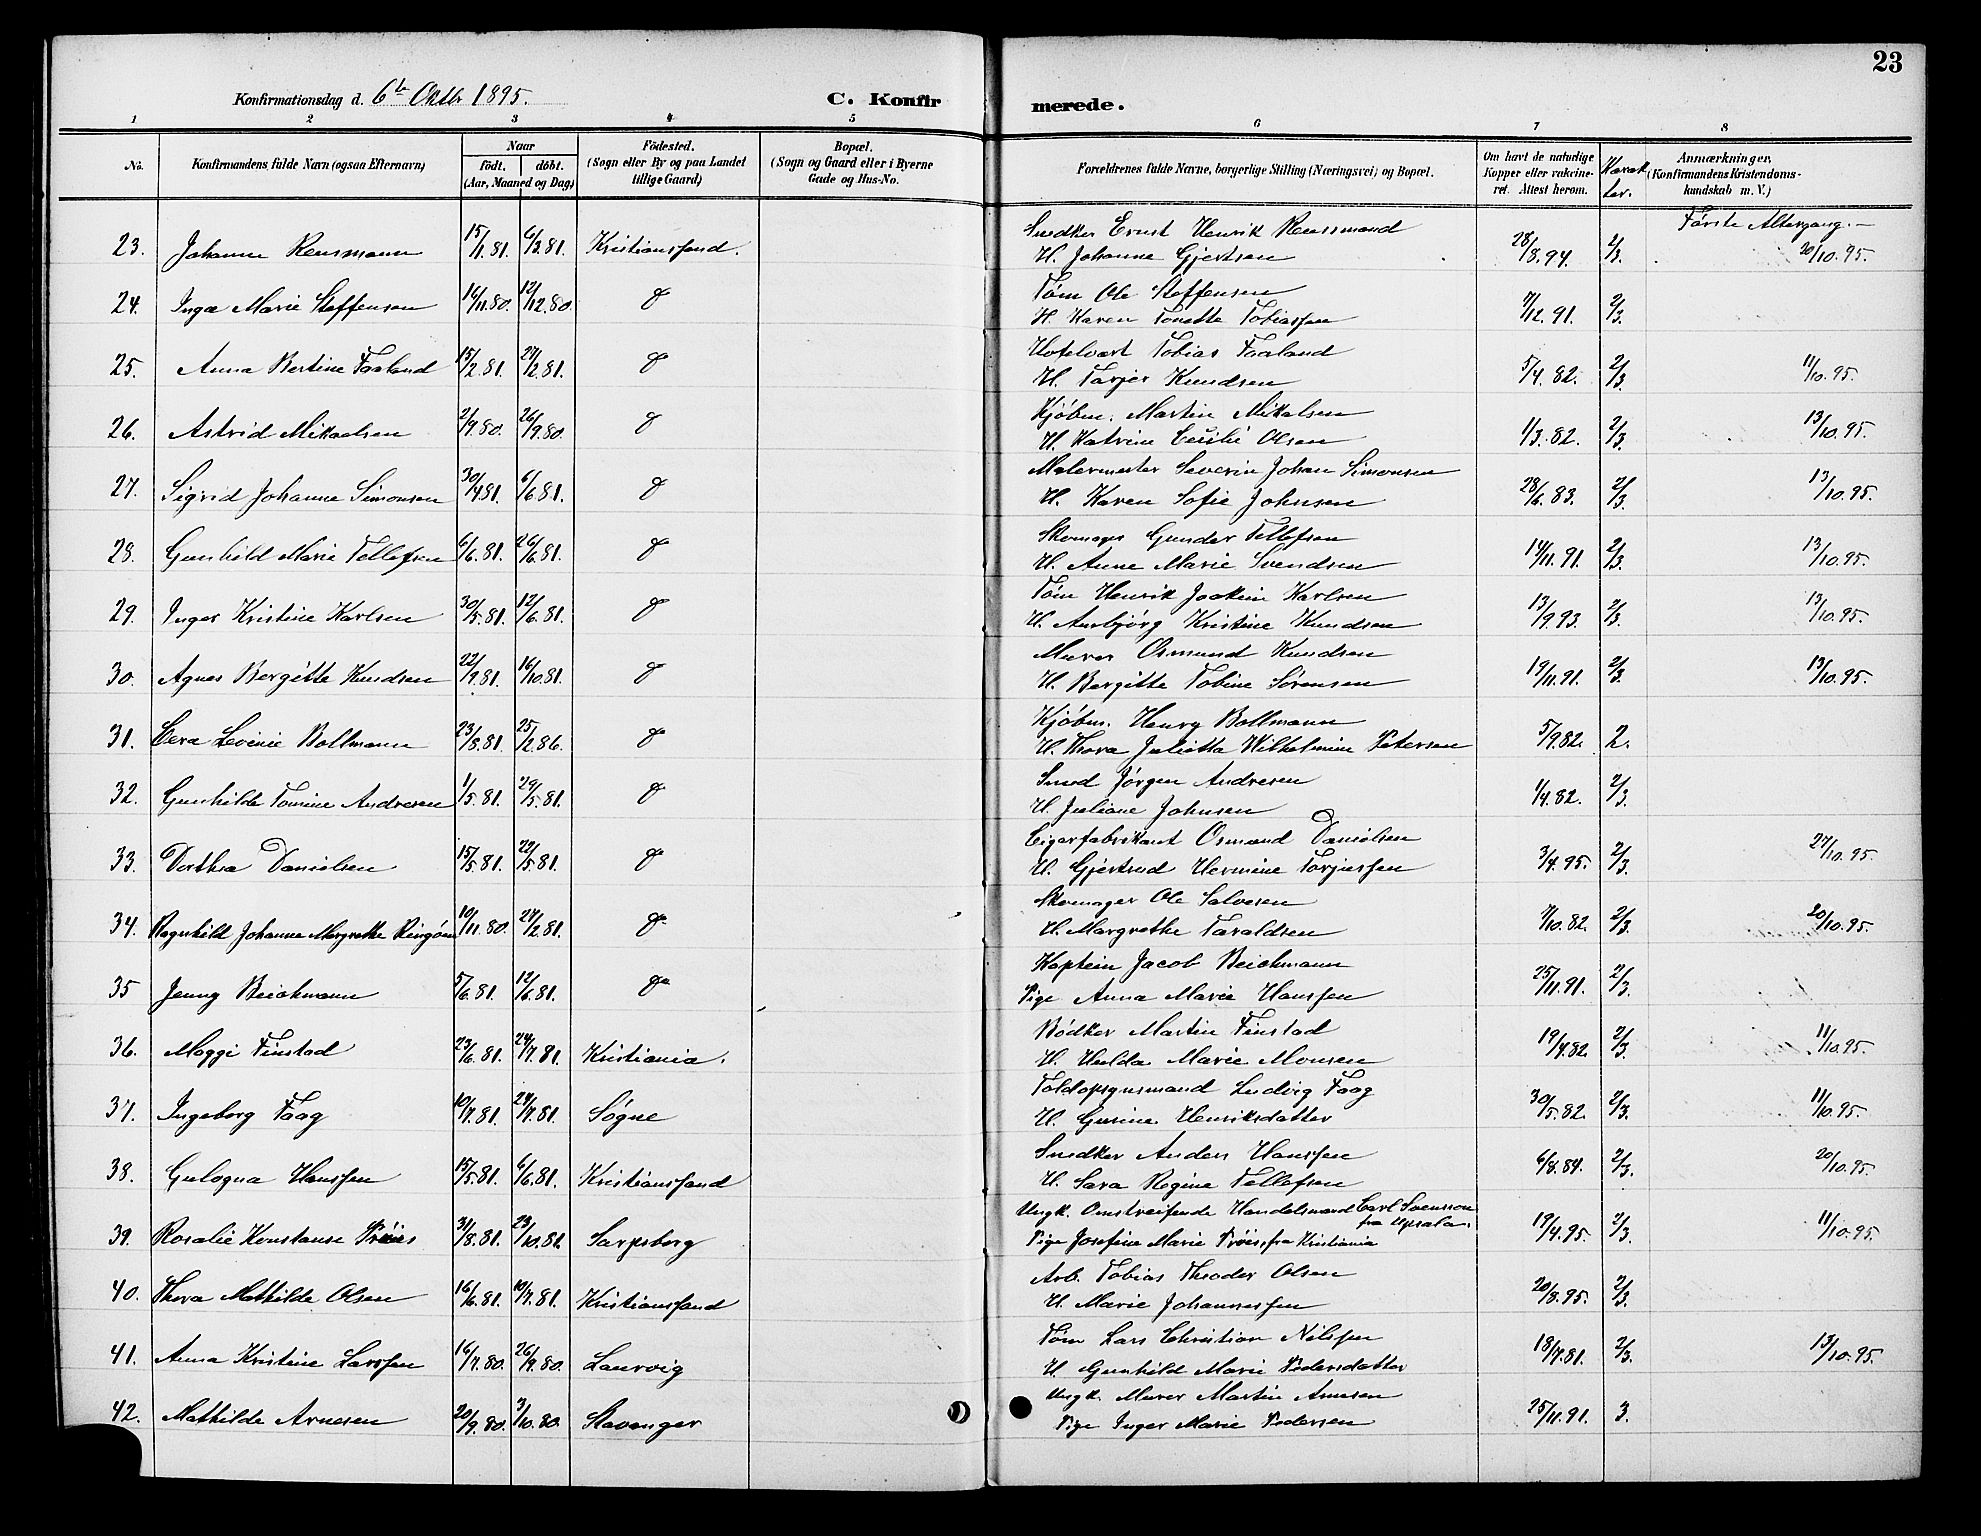 23
Konfirmationsdag d. 6te Oktbr 1895.
C. Konfirmerede.
1 2 3 4 5 6 7 8
No. Konfirmandens fulde Navn (ogsaa Efternavn) Naar födt. döbt. (Aar, Maaned og Dag) Födested. (Sogn eller By og paa Landet tillige Gaard) Bopæl. (Sogn og Gaard eller i Byerne Gade og Hus-No. Forældrenes fulde Navne, borgerlige Stilling (Næringsvei) og Bopæl. Om havt de naturlige Kopper eller vakcineret. Attest herom. Karakter. Anmærkninger. (Konfirmandens Kristendomskundskab m. V.)
Snedker Ernst Henrik Rensmand Første Altergang.
23. Johanne Rensmann 15/1.81. 6/3.81. Kristianssand. H. Johanne Gjertsen 28/8.94. 2/3. 20/10.95.
Tøm Ole Steffensen
24. Inga Marie Steffensen 16/11.80. 12/12.80. d H. Karen Tonette Tobiassen 7/12.91. 2/3.
Hotelvært Tobias Faaland
25. Anna Bertine Faaland 15/2.81. 27/2.81. d H. Torjer Knudsen 5/4.82. 2/3. 11/10.95.
Kjøbm. Martin Mikalsen
26. Astrid Mikaelsen 2/9.80. 26/9.80. d H. Katrine Cecilie Olsen 1/3.82. 2/3. 13/10.95.
Malermester Severin Johan Simonsen
27. Sigrid Johanne Simonsen 30/4.81. 6/6.81. d H. Karen Sofie Johnsen 28/6.83. 2/3. 13/10.95.
Skomager Gunder Tellefsen
28. Gunhild Marie Tellefsen 6/6.81. 26/6.81. d H. Anne Marie Svendsen 14/11.91. 2/3. 13/10.95.
Tøm Henrik Joakim Karlsen
29. Inger Kristine Karlsen 30/5.81. 12/6.81. d H. Anbjörg Kristine Knudsen 13/9.93. 2/3. 13/10.95.
Murer Osmund Knudsen
30. Agnes Bergitte Knudsen 22/9.81. 16/10.81. d H. Bergitte Tobine Sørensen 19/11.91. 2/3. 13/10.95.
Kjøbm. Henry Bollmann
31. Cera Levinie Bollmann 23/8.81. 25/2.86. d H. Thora Juliette Wilhelmine Petersen 5/9.82. 2.
Smed Jørgen Andresen
32. Gunhilde Tomine Andresen 1/5.81. 29/5.81. d H. Juliane Johnsen 1/4.82. 2/3.
Cigarfabrikant Osmund Danielsen
33. Dorthea Danielsen 15/5.81. 22/5.81. d H. Gjertrud Hermine Torjussen 3/4.95. 2/3. 27/10.95.
Skomager Ole Salvesen
34. Ragnhild Johanne Margrethe Ringøen 10/11.80. 27/2.81. d H. Margrethe Taraldsen 7/10.82. 2/3. 20/10.95.
Kaptein Jacob Beichmann
35 Jenny Beichmann 5/6.81. 12/6.81. d Pige Anna Marie Hanssen 25/11.91. 2/3.
Bödker Martin Finstad
36. Maggi Finstad 23/6.81. 24/7.81. Kristiania. H. Hulda Marie Monsen 19/4.82. 2/3. 11/10.95.
Toldopsynsmand Ludvig Faag
37. Ingeborg Faag 10/7.81. 24/7.81. Søgne H. Gurine Henriksdatter 30/5.82. 2/3. 11/10.95.
Snedker Anders Hanssen
38. Gulogna Hanssen 15/5.81. 6/6.81. Kristianssand H. Sara Regine Tellefsen 6/8.84. 2/3. 20/10.95.
Ungk. Omstreifende Handelsmand Carl Svensson fra Upsala.
39. Rosalie Konstanse 31/8.81. 23/10.81. Sarpsborg Pige Josefine Marie fra Kristiania 19/4.95. 2/3. 11/10.95.
Arb. Tobias Theodor Olsen
40. Thora Mathilde Olsen 16/6.81. 10/7.81. Kristianssand H. Marie Johannessen 20/8.95. 2/3.
Tøm Lars Christian Nilssen
41. Anna Kristine Larssen 16/7.80. 26/9.80. Laurvig H. Gunhild Marie Pedersdatter 18/7.81. 2/3. 13/10.95.
Ungk. Murer Martin Arnesen
42. Mathilde Arnesen 20/9.80. 3/10.80. Stavanger Pige Inger Marie Pedersen 25/11.91. 3.